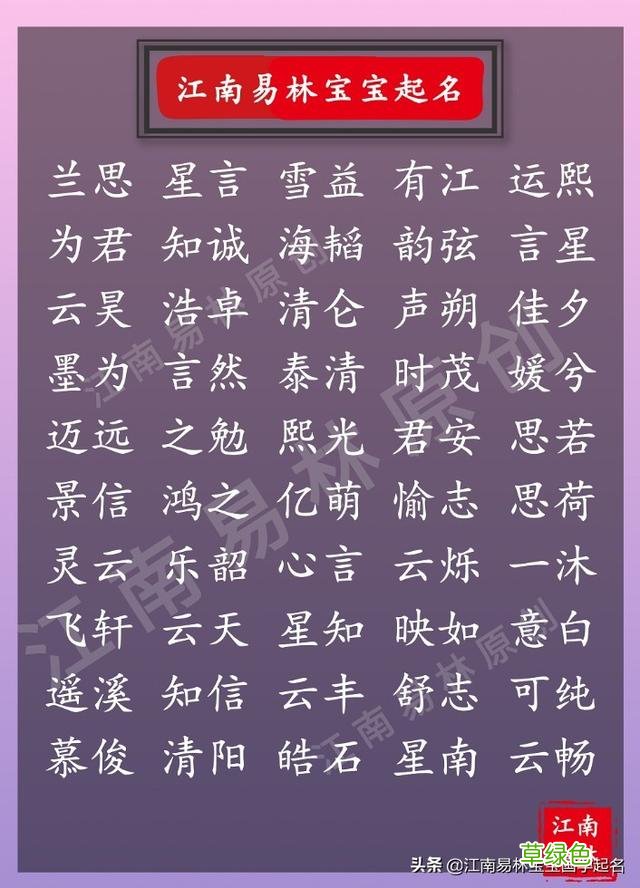 江南易林宝宝起名
兰思 星言 雪益 有江 运熙
为君 知诚 海韬 韵弦 言星
云昊 浩卓 清仑 声朔 佳夕
墨为 言然 泰清 时茂 媛兮
迈远 之勉 熙光 君安 思若
景信 鸿之 亿萌 愉志 思荷
灵云 乐韶 心言 云烁 一沐
飞轩 云天 星知 映如 意白
遥溪 知信 云丰 舒志 可纯
慕俊 清阳 皓石 星南 云畅
江南易林原创
江南易林原创
江南易林原创
江南
草绿色
头条 @江南易林宝宝国学起名